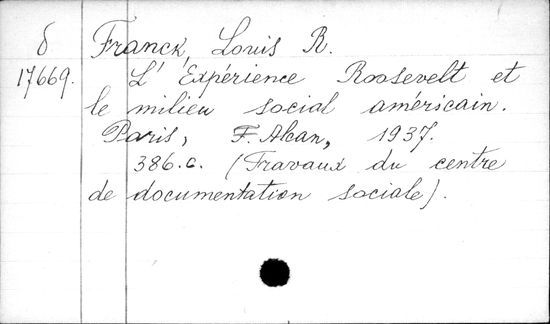 б Franck, Louis R.
17669. L'Expérience Roosevelt et
le milieu social américain.
Paris, F. Alcan, 1937.
386.c. (Travaux du centre
de documentation sociale).